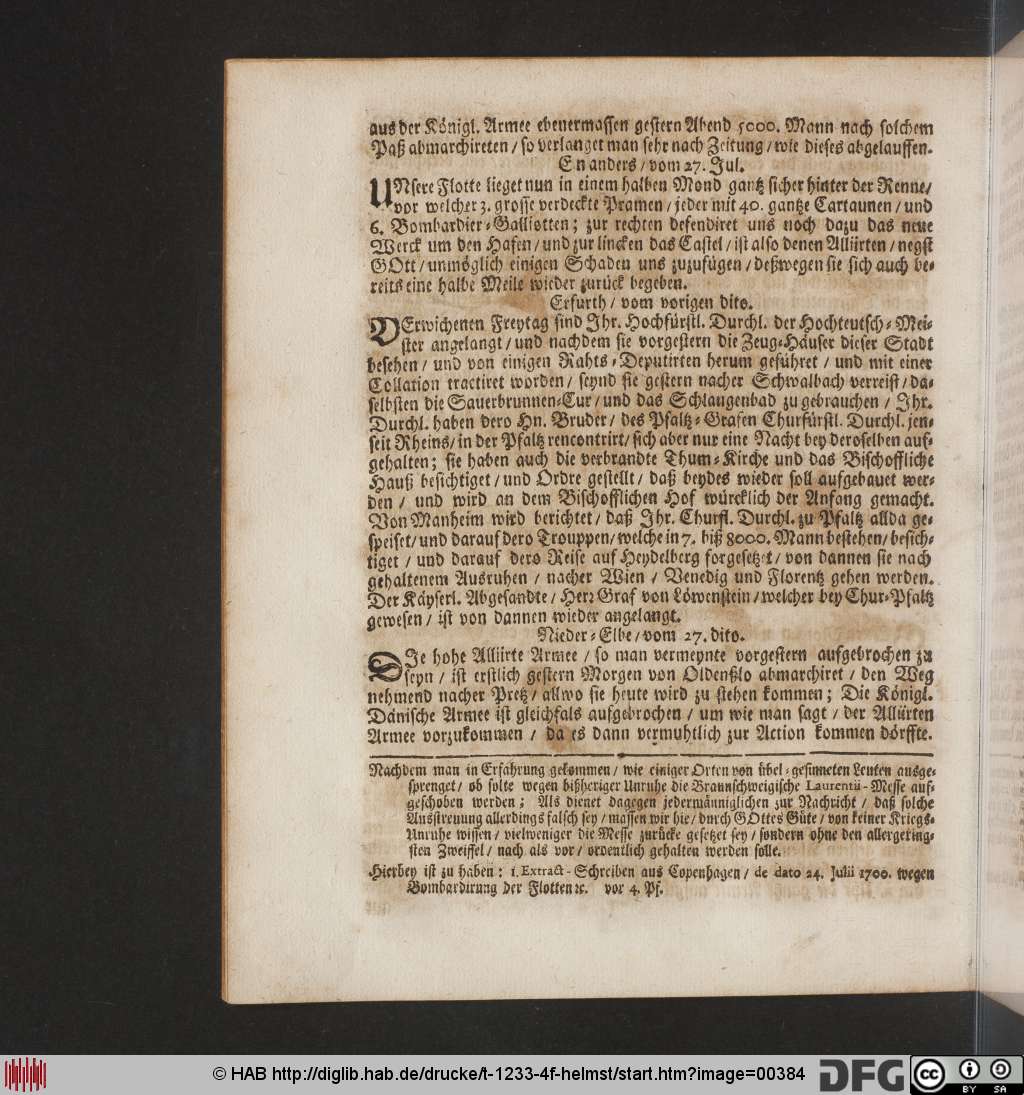 aus der Königl. Armee ebenermassen gestern Abend 5000. Mann nach solchem
Paß abmarchireten / so verlanget man sehr nach Zeitung / wie dieses abgelauffen.
Ein anders / vom 27. Jul.
UNsere Flotte lieget nun in einem halben Mond gantz sicher hinter der Renne /
vor welcher 3. grosse verdeckte Pramen / jeder mit 40. gantze Cartaunen / und
6. Bombardier-Galliotten; zur rechten defendiret uns noch dazu das neue
Werck um den Hafen / und zur lincken das Castel / ist also denen Alliirten / negst
GOtt / unmöglich einigen Schaden uns zuzufügen / deßwegen sie sich auch be-
reits eine halbe Meile wieder zurück begeben.
Erfurth / vom vorigen dito.
VErwichenen Freytag sind Ihr. Hochfürstl. Durchl. der Hochteutsch-Mei-
ster angelangt / und nachdem sie vorgestern die Zeug-Häuser dieser Stadt
besehen / und von einigen Rahts-Deputirten herum geführet / und mit einer
Collation tractiret worden / seynd sie gestern nacher Schwalbach verreist / da-
selbsten die Sauerbrunnen-Cur / und das Schlangenbad zu gebrauchen / Ihr.
Durchl. haben dero Hn. Bruder / des Pfaltz-Grafen Churfürstl. Durchl. jen-
seit Rheins / in der Pfaltz rencontrirt / sich aber nur eine Nacht bey deroselben auf-
gehalten; sie haben auch die verbrandte Thum-Kirche und das Bischoffliche
Hauß besichtiget / und Ordre gestellt / daß beydes wieder soll aufgebauet wer-
den / und wird an dem Bischofflichen Hof würcklich der Anfang gemacht.
Von Manheim wird berichtet / daß Ihr. Churfl. Durchl. zu Pfaltz allda ge-
speiset / und darauf dero Trouppen / welche in 7. biß 8000. Mann bestehen / besich-
tiget / und darauf dero Reise auf Heydelberg forgesetzet / von dannen sie nach
gehaltenem Ausruhen / nacher Wien / Venedig und Florentz gehen werden.
Der Käyserl. Abgesandte / Herr Graf von Löwenstein / welcher bey Chur-Pfaltz
gewesen / ist von dannen wieder angelangt.
Nieder-Elbe / vom 27. dito.
DIe hohe Alliirte Armee / so man vermeynte vorgestern aufgebrochen zu
seyn / ist erstlich gestern Morgen von Oldenßlo abmarchiret / den Weg
nehmend nacher Pretz / allwo sie heute wird zu stehen kommen; Die Königl.
Dänische Armee ist gleichfals aufgebrochen / um wie man sagt / der Alliirten
Armee vorzukommen / da es dann vermuhtlich zur Action kommen dörffte.
Nachdem man in Erfahrung gekommen / wie einiger Orten von übel-gesinneten Leuten ausge-
sprenget / ob solte wegen bißheriger Unruhe die Braunschweigische Laurentii-Messe auf-
geschoben werden; Als dienet dagegen jedermänniglichen zur Nachricht / daß solche
Ausstreuung allerdings falsch sey / massen wir hie / durch GOttes Güte / von keiner Kriegs-
Unruhe wissen / vielweniger die Messe zurücke gesetzet sey / sondern ohne den allergering-
sten Zweiffel / nach als vor / ordentlich gehalten werden solle.
Hierbey ist zu haben: 1. Extract-Schreiben aus Copenhagen / de dato 24. Julii 1700. wegen
Bombardirung der Flotten ꝛc. vor 4. Pf.
© HAB http://diglib.hab.de/drucke/t-1233-4f-helmst/start.htm?image=00384
DFG
cc BY SA